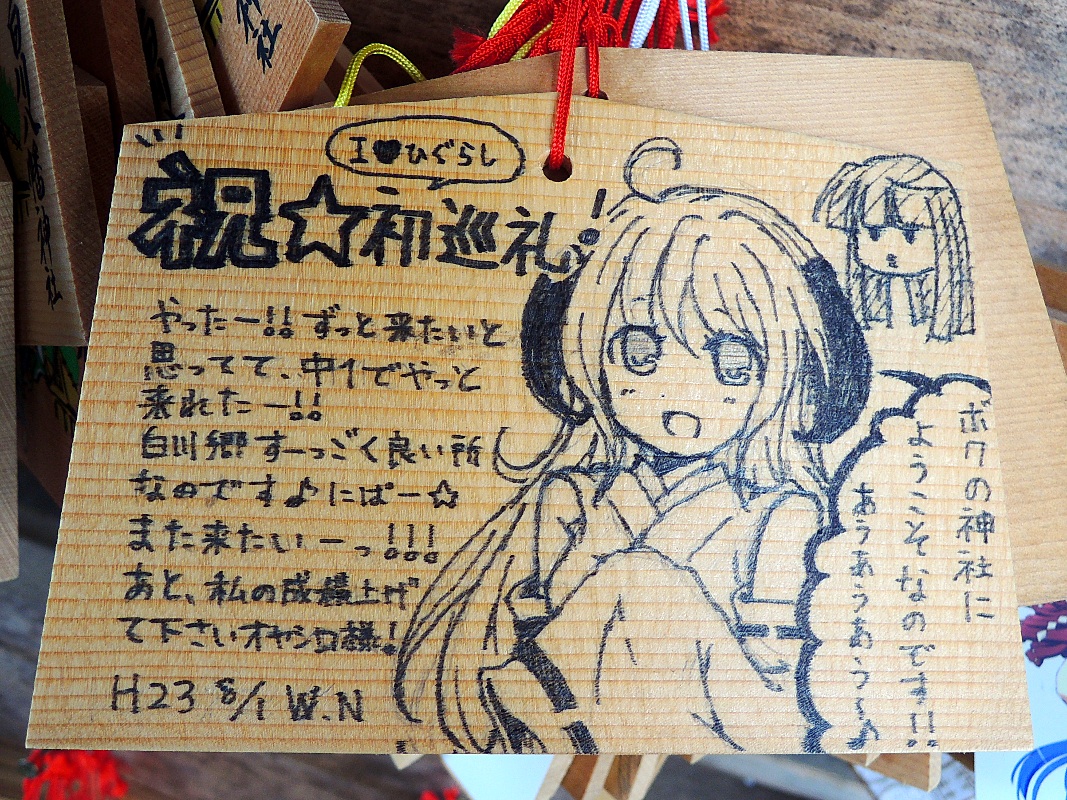 I♥ひぐらし
祝☆初巡礼!
やったー!!ずっと来たいと
思ってて、中1でやっと
来れたー!!
白川郷すーっごく良い所
なのです♪にぱー☆
また来たいーっ!!!
あと、私の成績上げ
て下さいオヤシロ様!
H23 8/1 W.N
ボクの神社に
ようこそなのです!!
あぅあぅあぅ~♪
白川八幡神社
神社